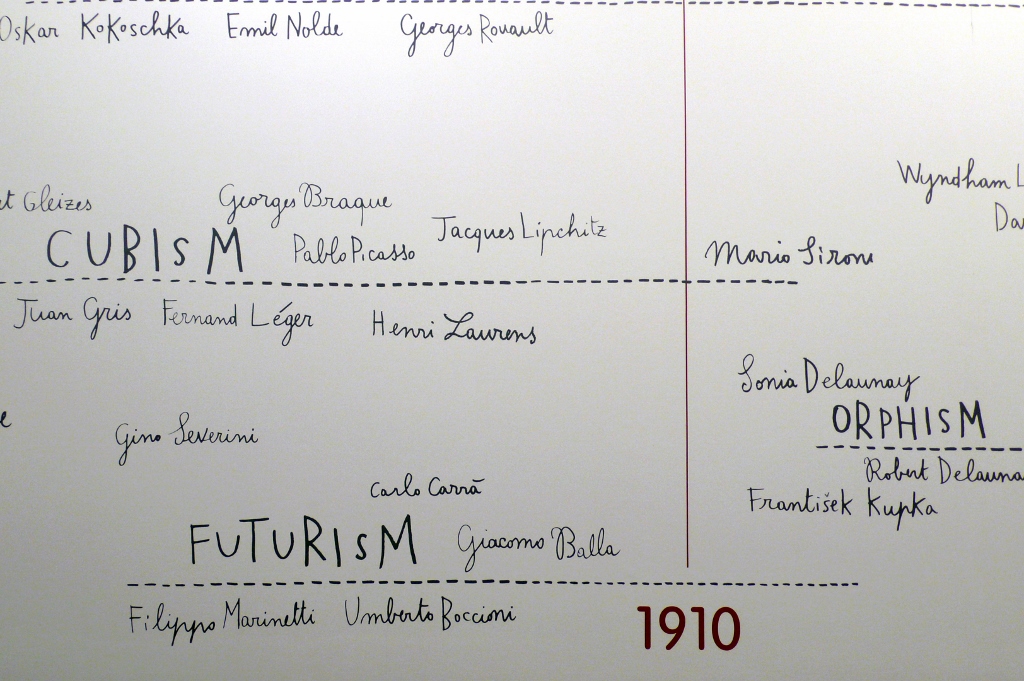 Oskar Kokoschka Emil Nolde Georges Rouault
Wyndham L
et Gleizes Georges Braque
Da
Jacques Lipchitz
CUBISM Pablo Picasso Mario Sironi
Juan Gris Fernand Léger Henri Laurens
Sonia Delaunay
ORPHISM
e
Gino Severini
Robert Delauna
Carlo Carrà
František Kupka
FUTURISM Giacomo Balla
Filippo Marinetti Umberto Boccioni
1910